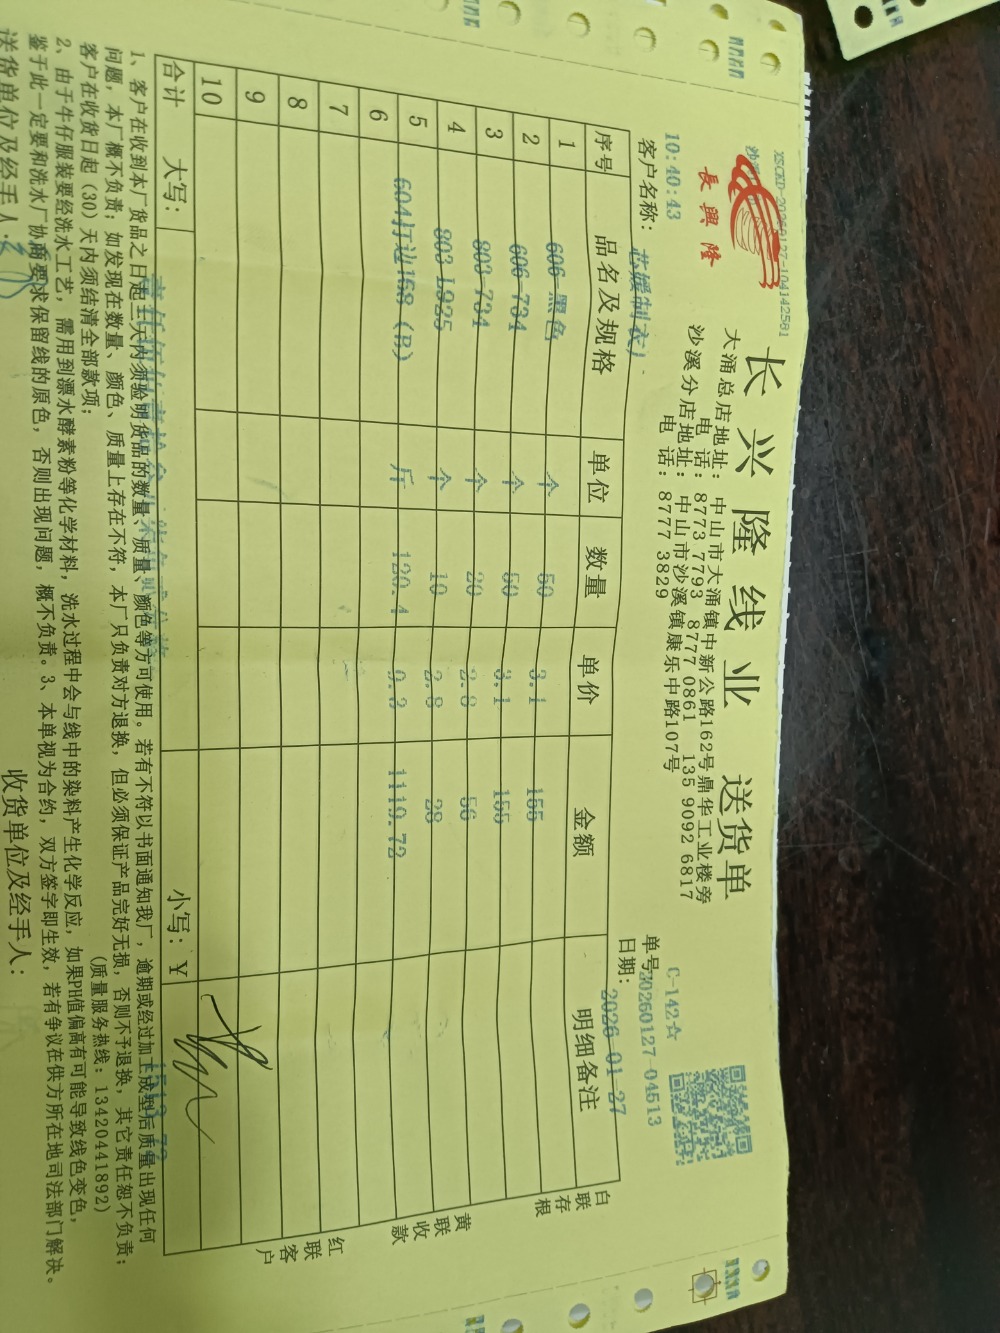 長興隆
长兴隆线业 送货单
大涌总店地址：中山市大涌镇中新公路162号鼎华工业楼旁
电话：8773 7793 8777 0861 135 9092 6817
沙溪分店地址：中山市沙溪镇康乐中路107号
电话：8777 3829
C-142☆
10:40:43
单号 20260127-04513
客户名称：芯媛制衣厂
日期：2026-01-27
序号 品名及规格 单位 数量 单价 金额 明细备注
1 606-黑色 个 50 3.1 155
2 606-734 个 50 3.1 155
3 803-734 个 20 2.8 56
4 803-L925 个 10 2.8 28
5 604打边168（B） 斤 120.4 9.3 1119.72
6
7
8
9
10
合计 大写： 小写：￥
白联存根
黄联收款
红联客户
1、客户在收到本厂货品之日起三天内须验明货品的数量、质量、颜色等方可使用。若有不符以书面通知我厂，逾期或经过加工成型后质量出现任何
问题，本厂概不负责；如发现在数量、颜色、质量上存在不符，本厂只负责对方退换，但必须保证产品完好无损，否则不予退换，其它责任恕不负责；
客户在收货日起（30）天内须结清全部款项；
（质量服务热线：13420441892）
2、由于牛仔服装要经洗水工艺，需用到漂水酵素粉等化学材料，洗水过程中会与线中的染料产生化学反应，如果PH值偏高有可能导致线色变色，
鉴于此一定要和洗水厂协商要求保留线的原色，否则出现问题，概不负责。3、本单视为合约，双方签字即生效，若有争议在供方所在地司法部门解决。
送货单位及经手人： 收货单位及经手人：